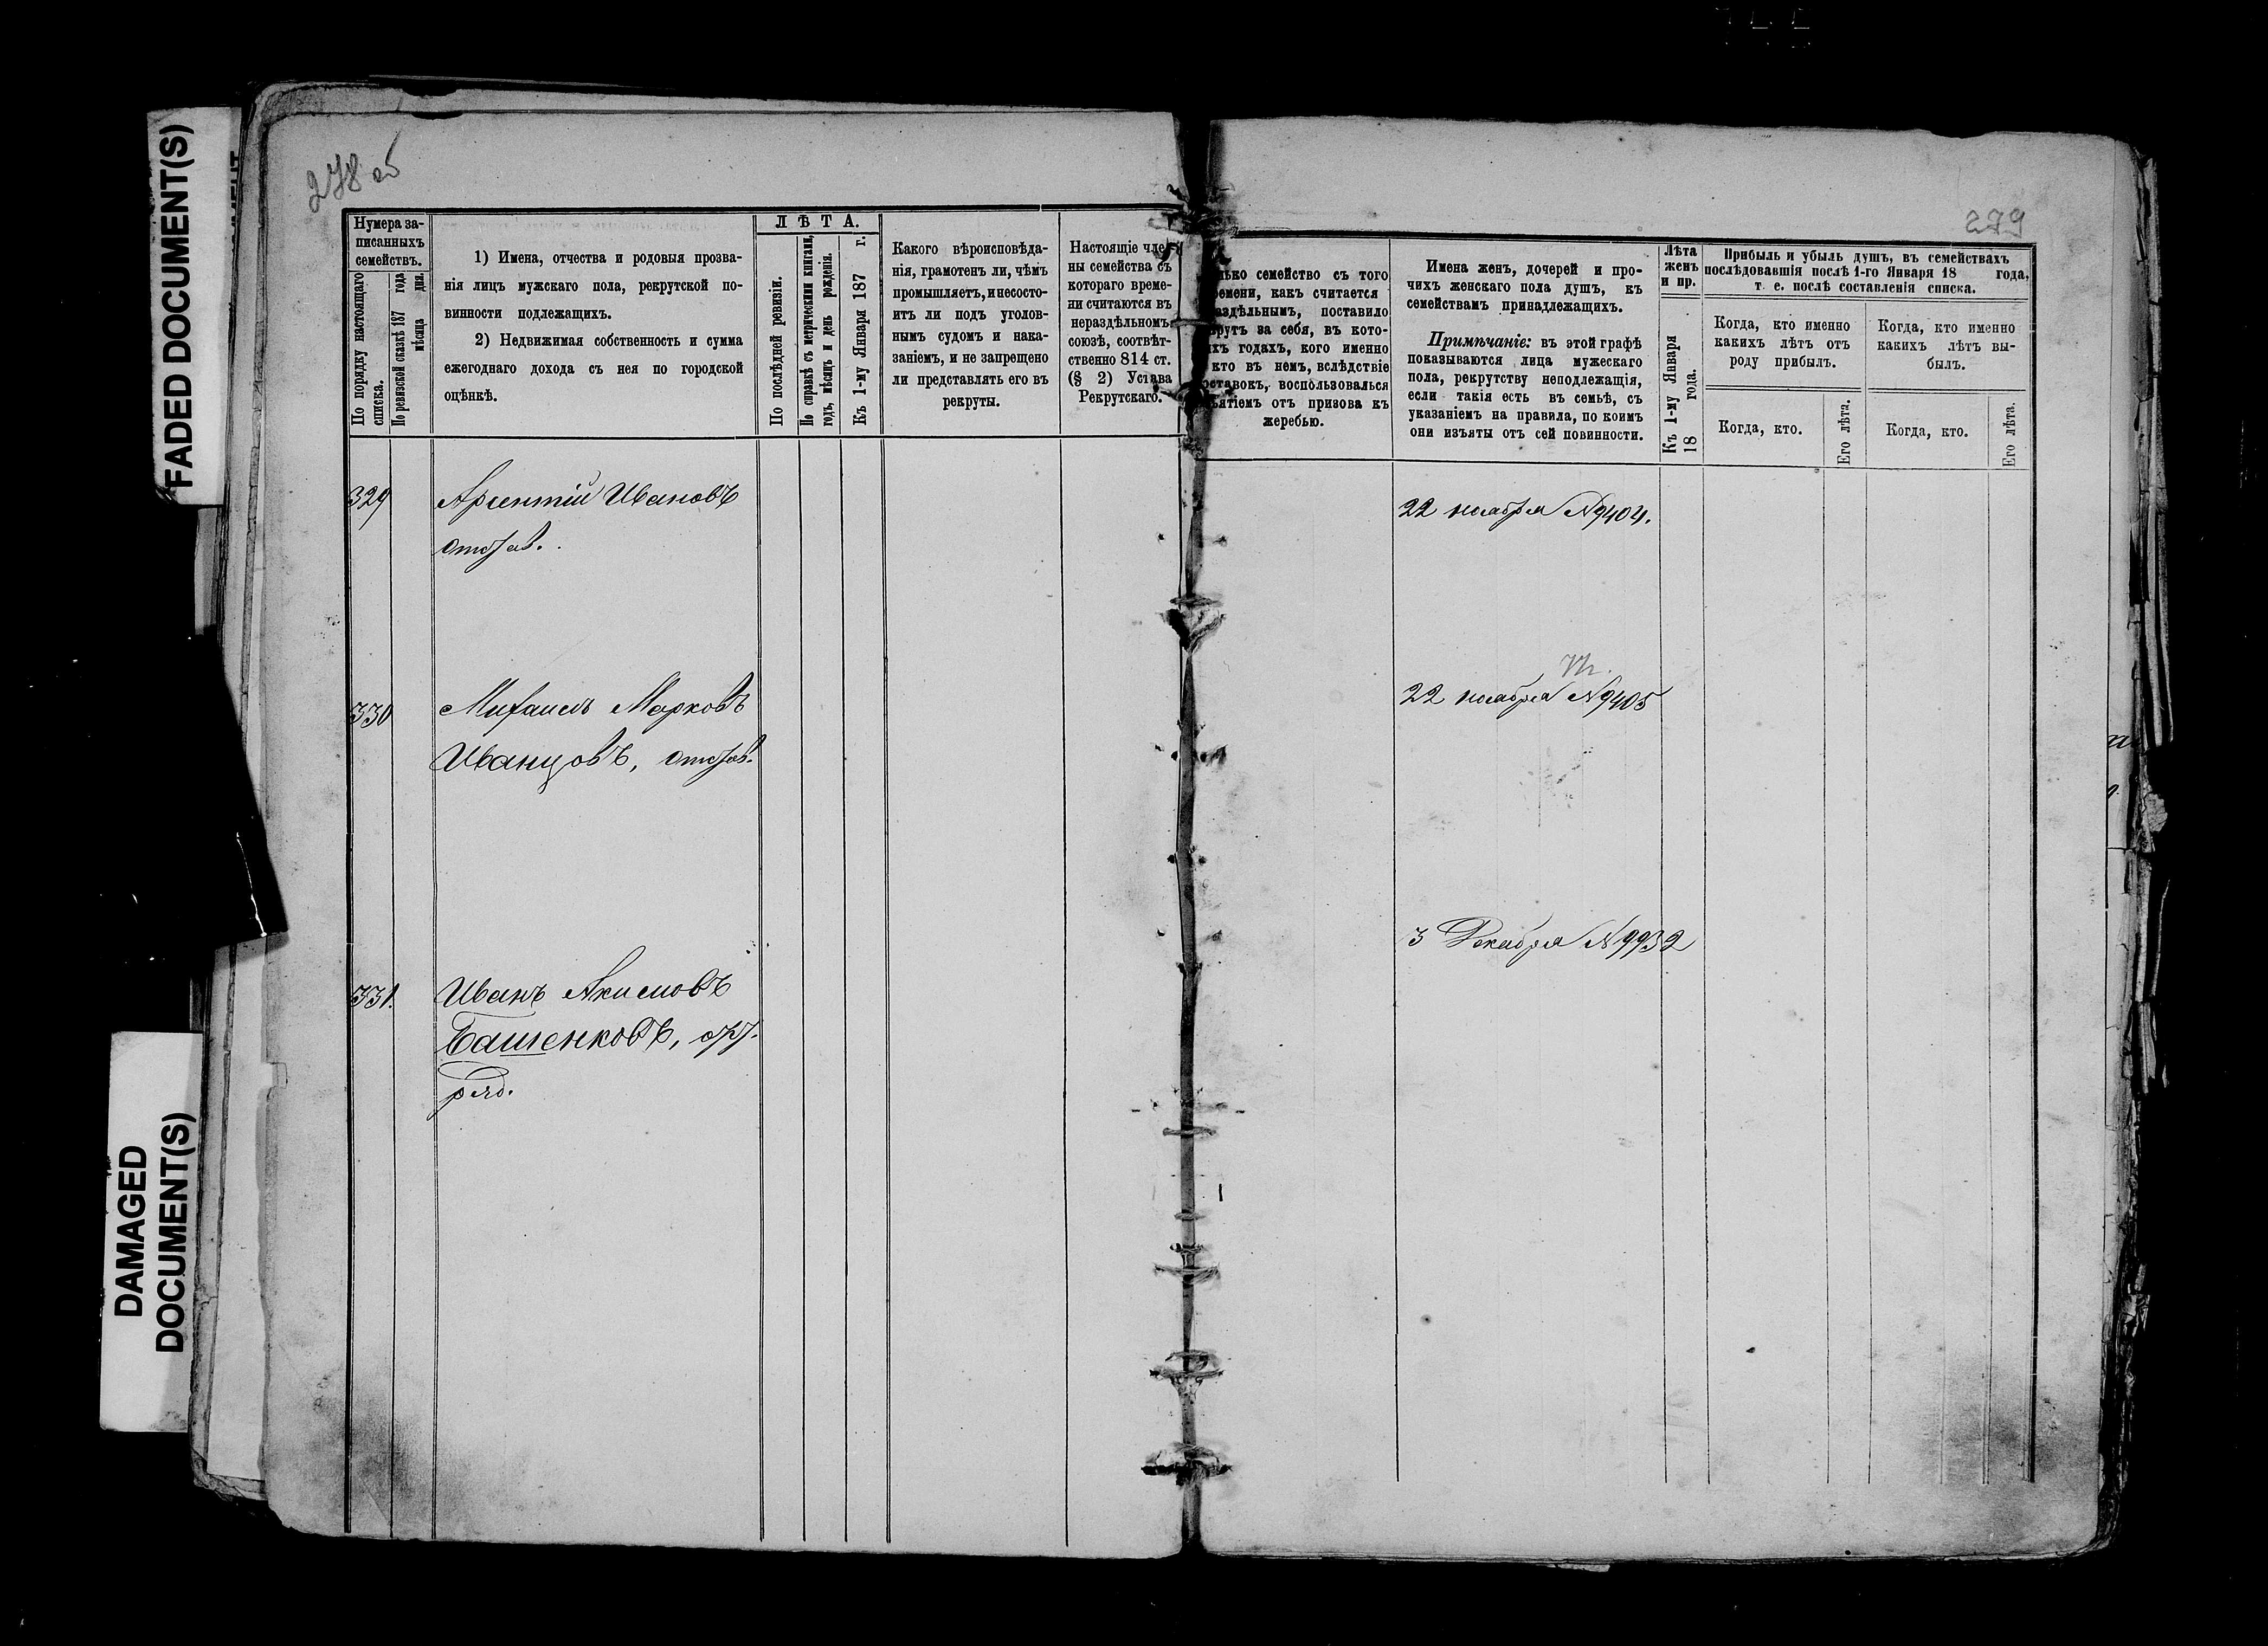 FADED DOCUMENT(S)
DAMAGED
DOCUMENT(S)
278 об
Нумера за-
писанныхъ
семействъ.
По порядку настоящаго
списка.
По ревизской сказкѣ 187 года
мѣсяца дня.
1) Имена, отчества и родовыя прозва-
нія лицъ мужскаго пола, рекрутской по-
винности подлежащихъ.
2) Недвижимая собственность и сумма
ежегоднаго дохода съ нея по городской
оцѣнкѣ.
ЛѢТА.
По послѣдней ревизіи.
По справкѣ съ метрическими книгами,
годъ, мѣсяцъ и день рожденія.
Къ 1-му Января 187 г.
Какого вѣроисповѣда-
нія, грамотенъ ли, чѣмъ
промышляетъ, и несосто-
итъ ли подъ уголов-
нымъ судомъ и нака-
заніемъ, и не запрещено
ли представлять его въ
рекруты.
Настоящіе чле-
ны семейства съ
котораго време-
ни считаются въ
нераздѣльномъ
союзѣ, соотвѣт-
ственно 814 ст.
(§ 2) Устава
Рекрутскаго.
329
Арсентій Ивановъ
330
Михаилъ Марковъ
Иванцовъ,
331.
Иванъ Акимовъ
Башенковъ,
ряд.
279
лько семейство съ того
ремени, какъ считается
аздѣльнымъ, поставило
рутъ за себя, въ кото-
ихъ годахъ, кого именно
кто въ немъ, вслѣдствіе
оставокъ, воспользовался
ъятіемъ отъ призова къ
жеребью.
Имена женъ, дочерей и про-
чихъ женскаго пола душъ, къ
семействамъ принадлежащихъ.
Примѣчаніе: въ этой графѣ
показываются лица мужескаго
пола, рекрутству неподлежащія,
если такія есть въ семьѣ, съ
указаніемъ на правила, по коимъ
они изъяты отъ сей повинности.
Лѣта
женъ
и пр.
Къ 1-му Января
18 года.
Прибыль и убыль душъ, въ семействахъ
послѣдовавшія послѣ 1-го Января 18 года,
т. е. послѣ составленія списка.
Когда, кто именно
какихъ лѣтъ отъ
роду прибылъ.
Когда, кто именно
какихъ лѣтъ вы-
былъ.
Когда, кто.
Его лѣта.
Когда, кто.
Его лѣта.
22 ноября №9404.
22 ноября №9405
3 Декабря №9932